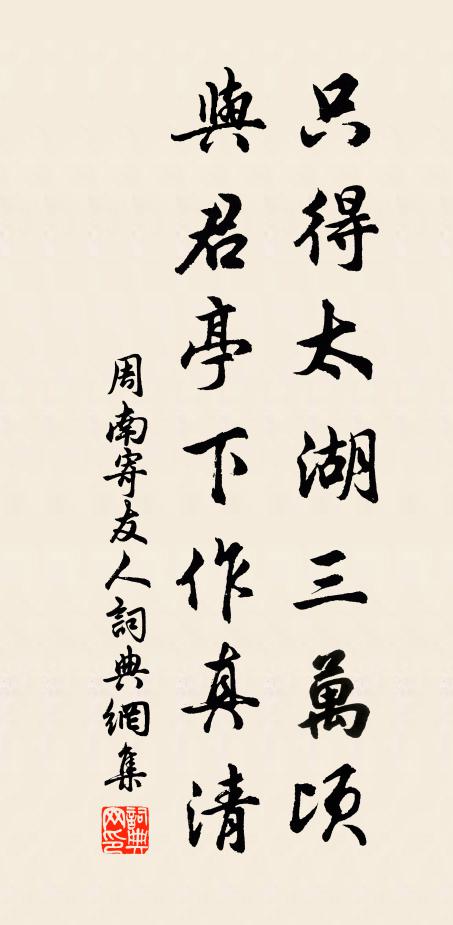 只得太湖三萬頃
與君亭下作真清
周南寄友人詞典網集
詞典網印